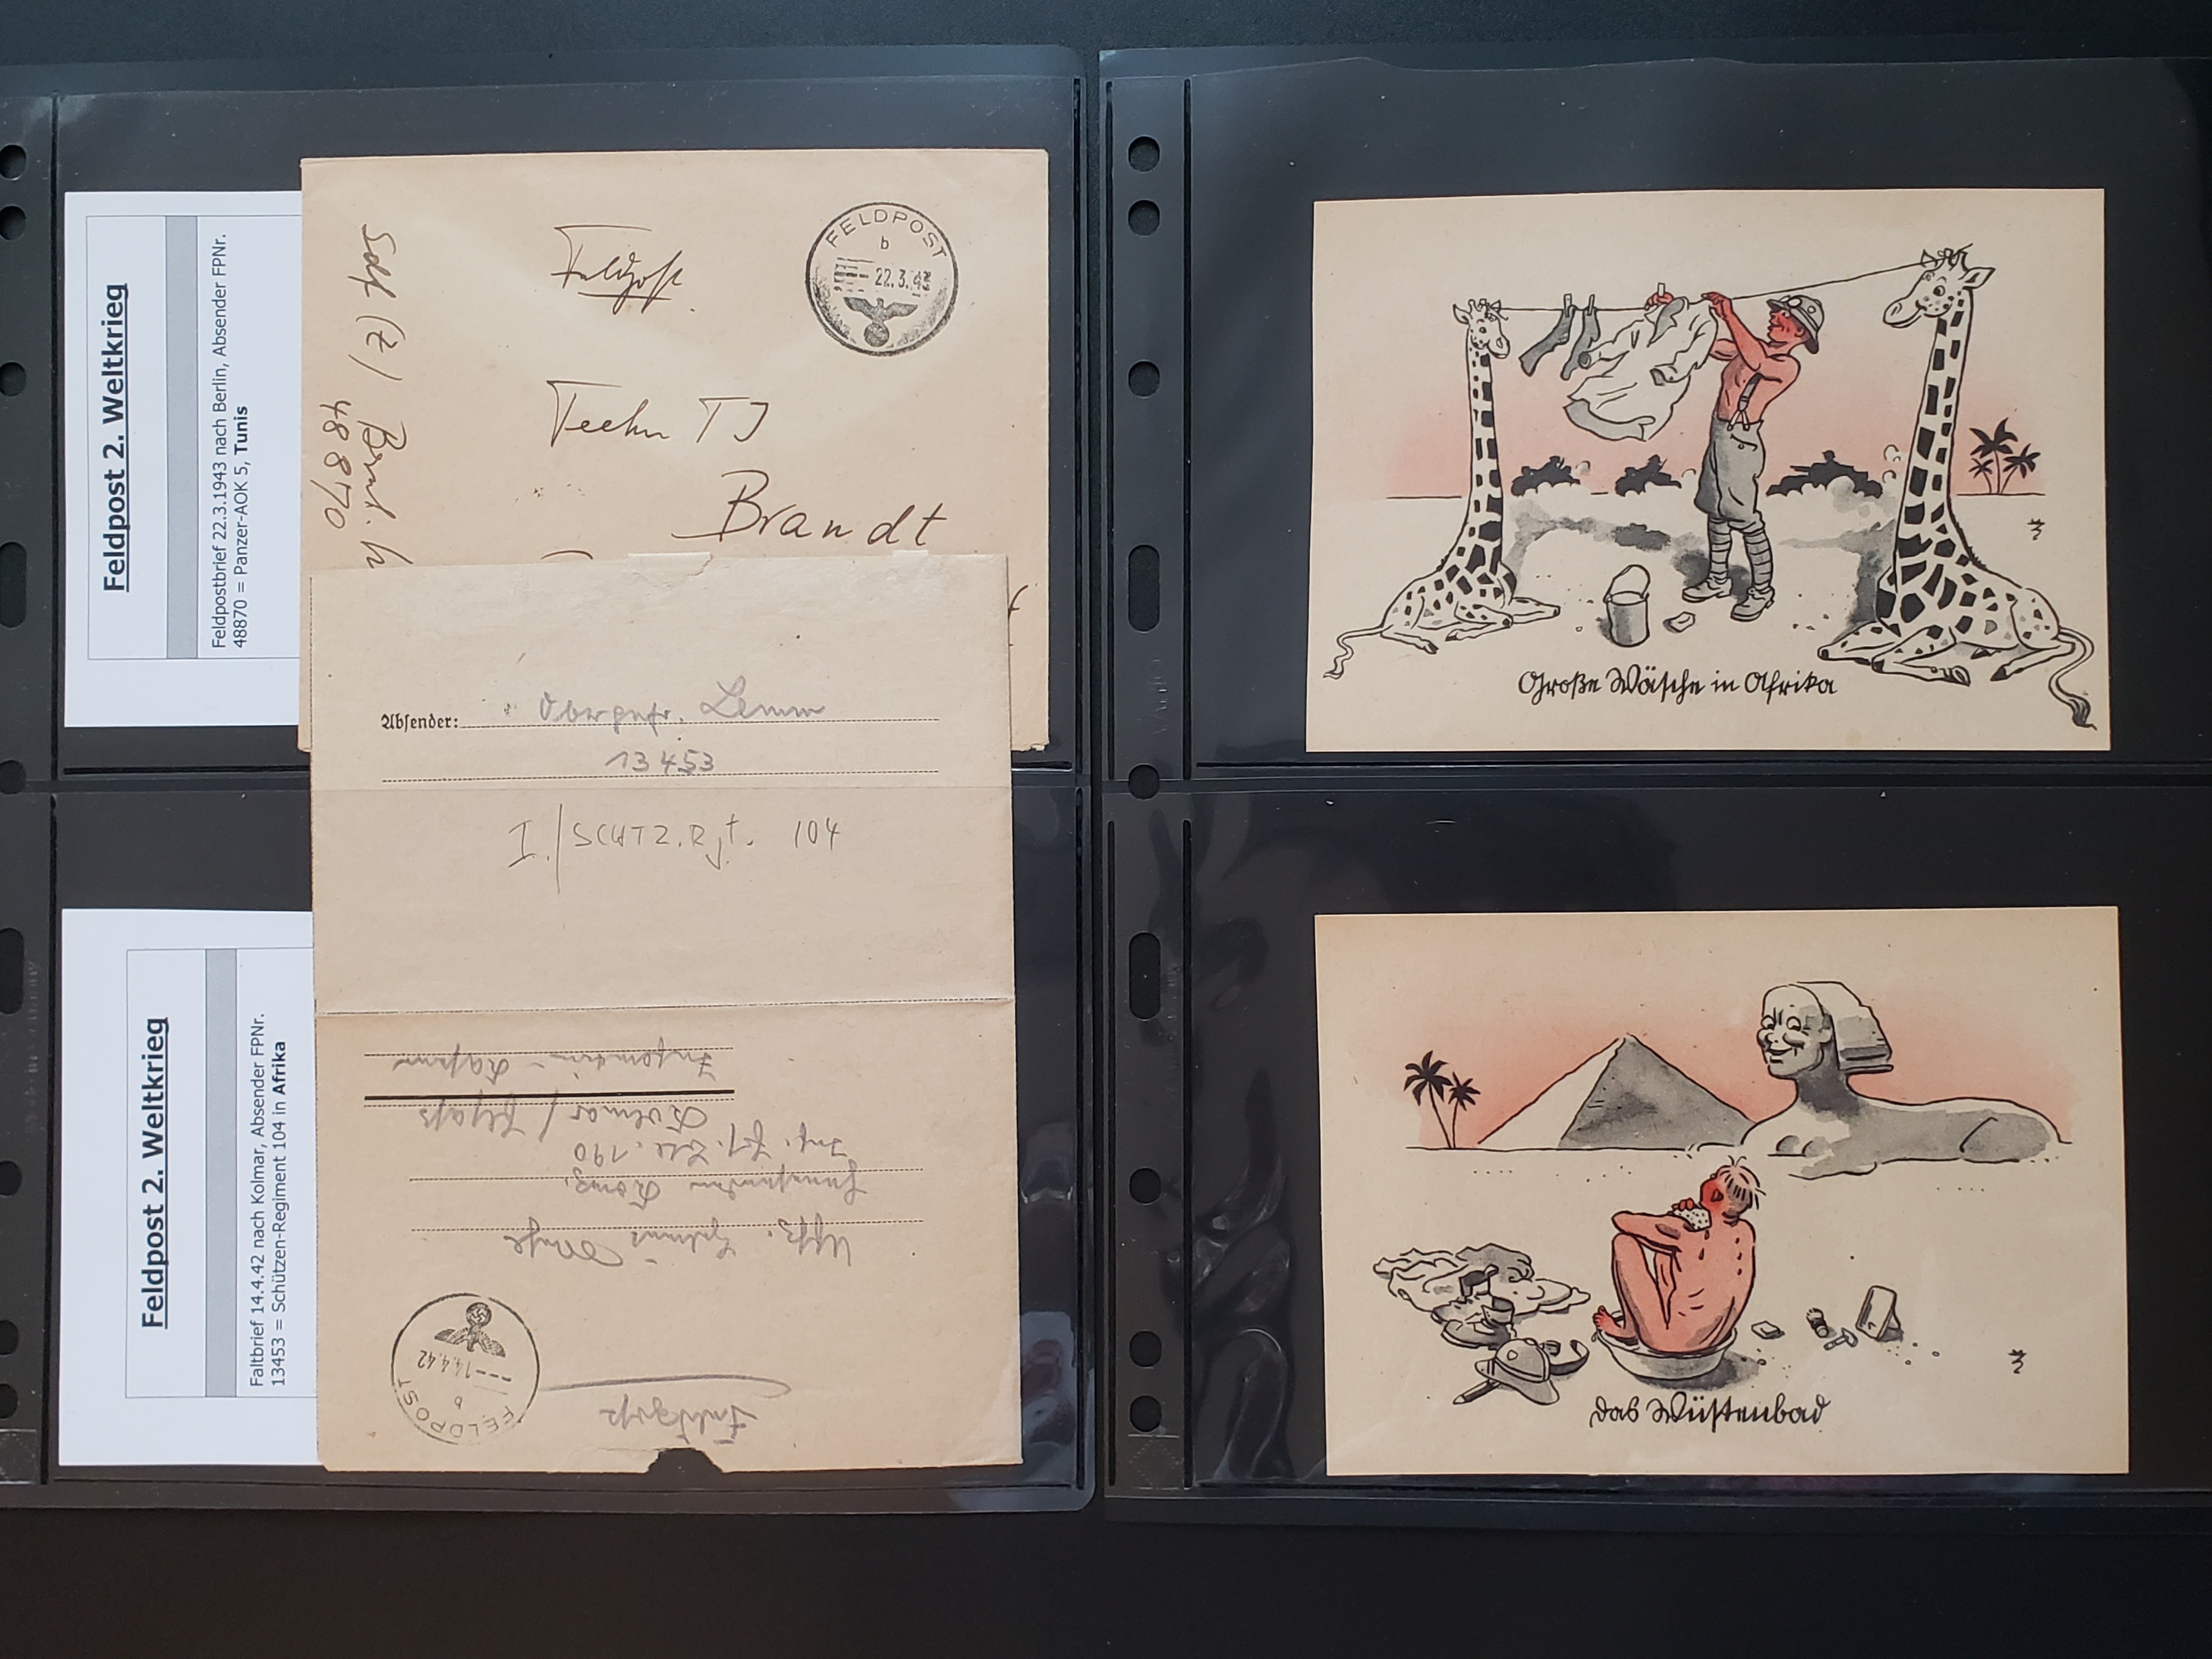 Feldpost 2. Weltkrieg
Feldpostbrief 22.3.1943 nach Berlin, Absender FPNr.
48870 = Panzer-AOK 5, Tunis
Feldpost
FELDPOST
b
22.3.43
Techn TJ
Brandt
48870
Absender: Obergefr. Lemm
13453
I./SCHTZ.Rgt. 104
Feldpost 2. Weltkrieg
Faltbrief 14.4.42 nach Kolmar, Absender FPNr.
13453 = Schützen-Regiment 104 in Afrika
Feldpost
FELDPOST
b
14.4.42
Uffz. Helmut
Inf. 190
Kolmar / Elsaß
Große Wäsche in Afrika
das Wüstenbad